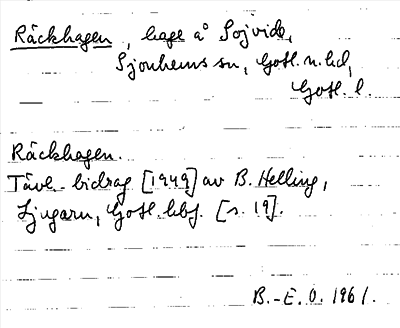 Räckhagen, hage å Sojvide,
Sjonhems sn, Gotl. n. hd,
Gotl. l.
Räckhagen.
Tävl. bidrag [1949] av B. Helling,
Ljugarn, Gotl. hbf. [s. 19].
B.-E. O. 1961.